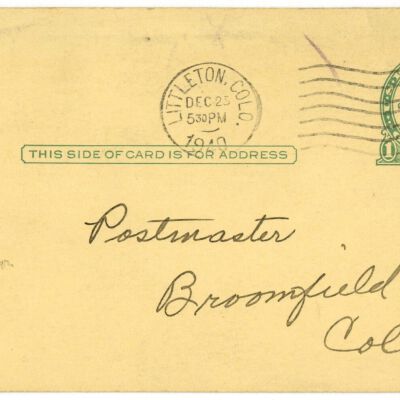 LITTLETON, COLO.
DEC 23
530PM
1940
THIS SIDE OF CARD IS FOR ADDRESS
1
Postmaster
Broomfield
Col